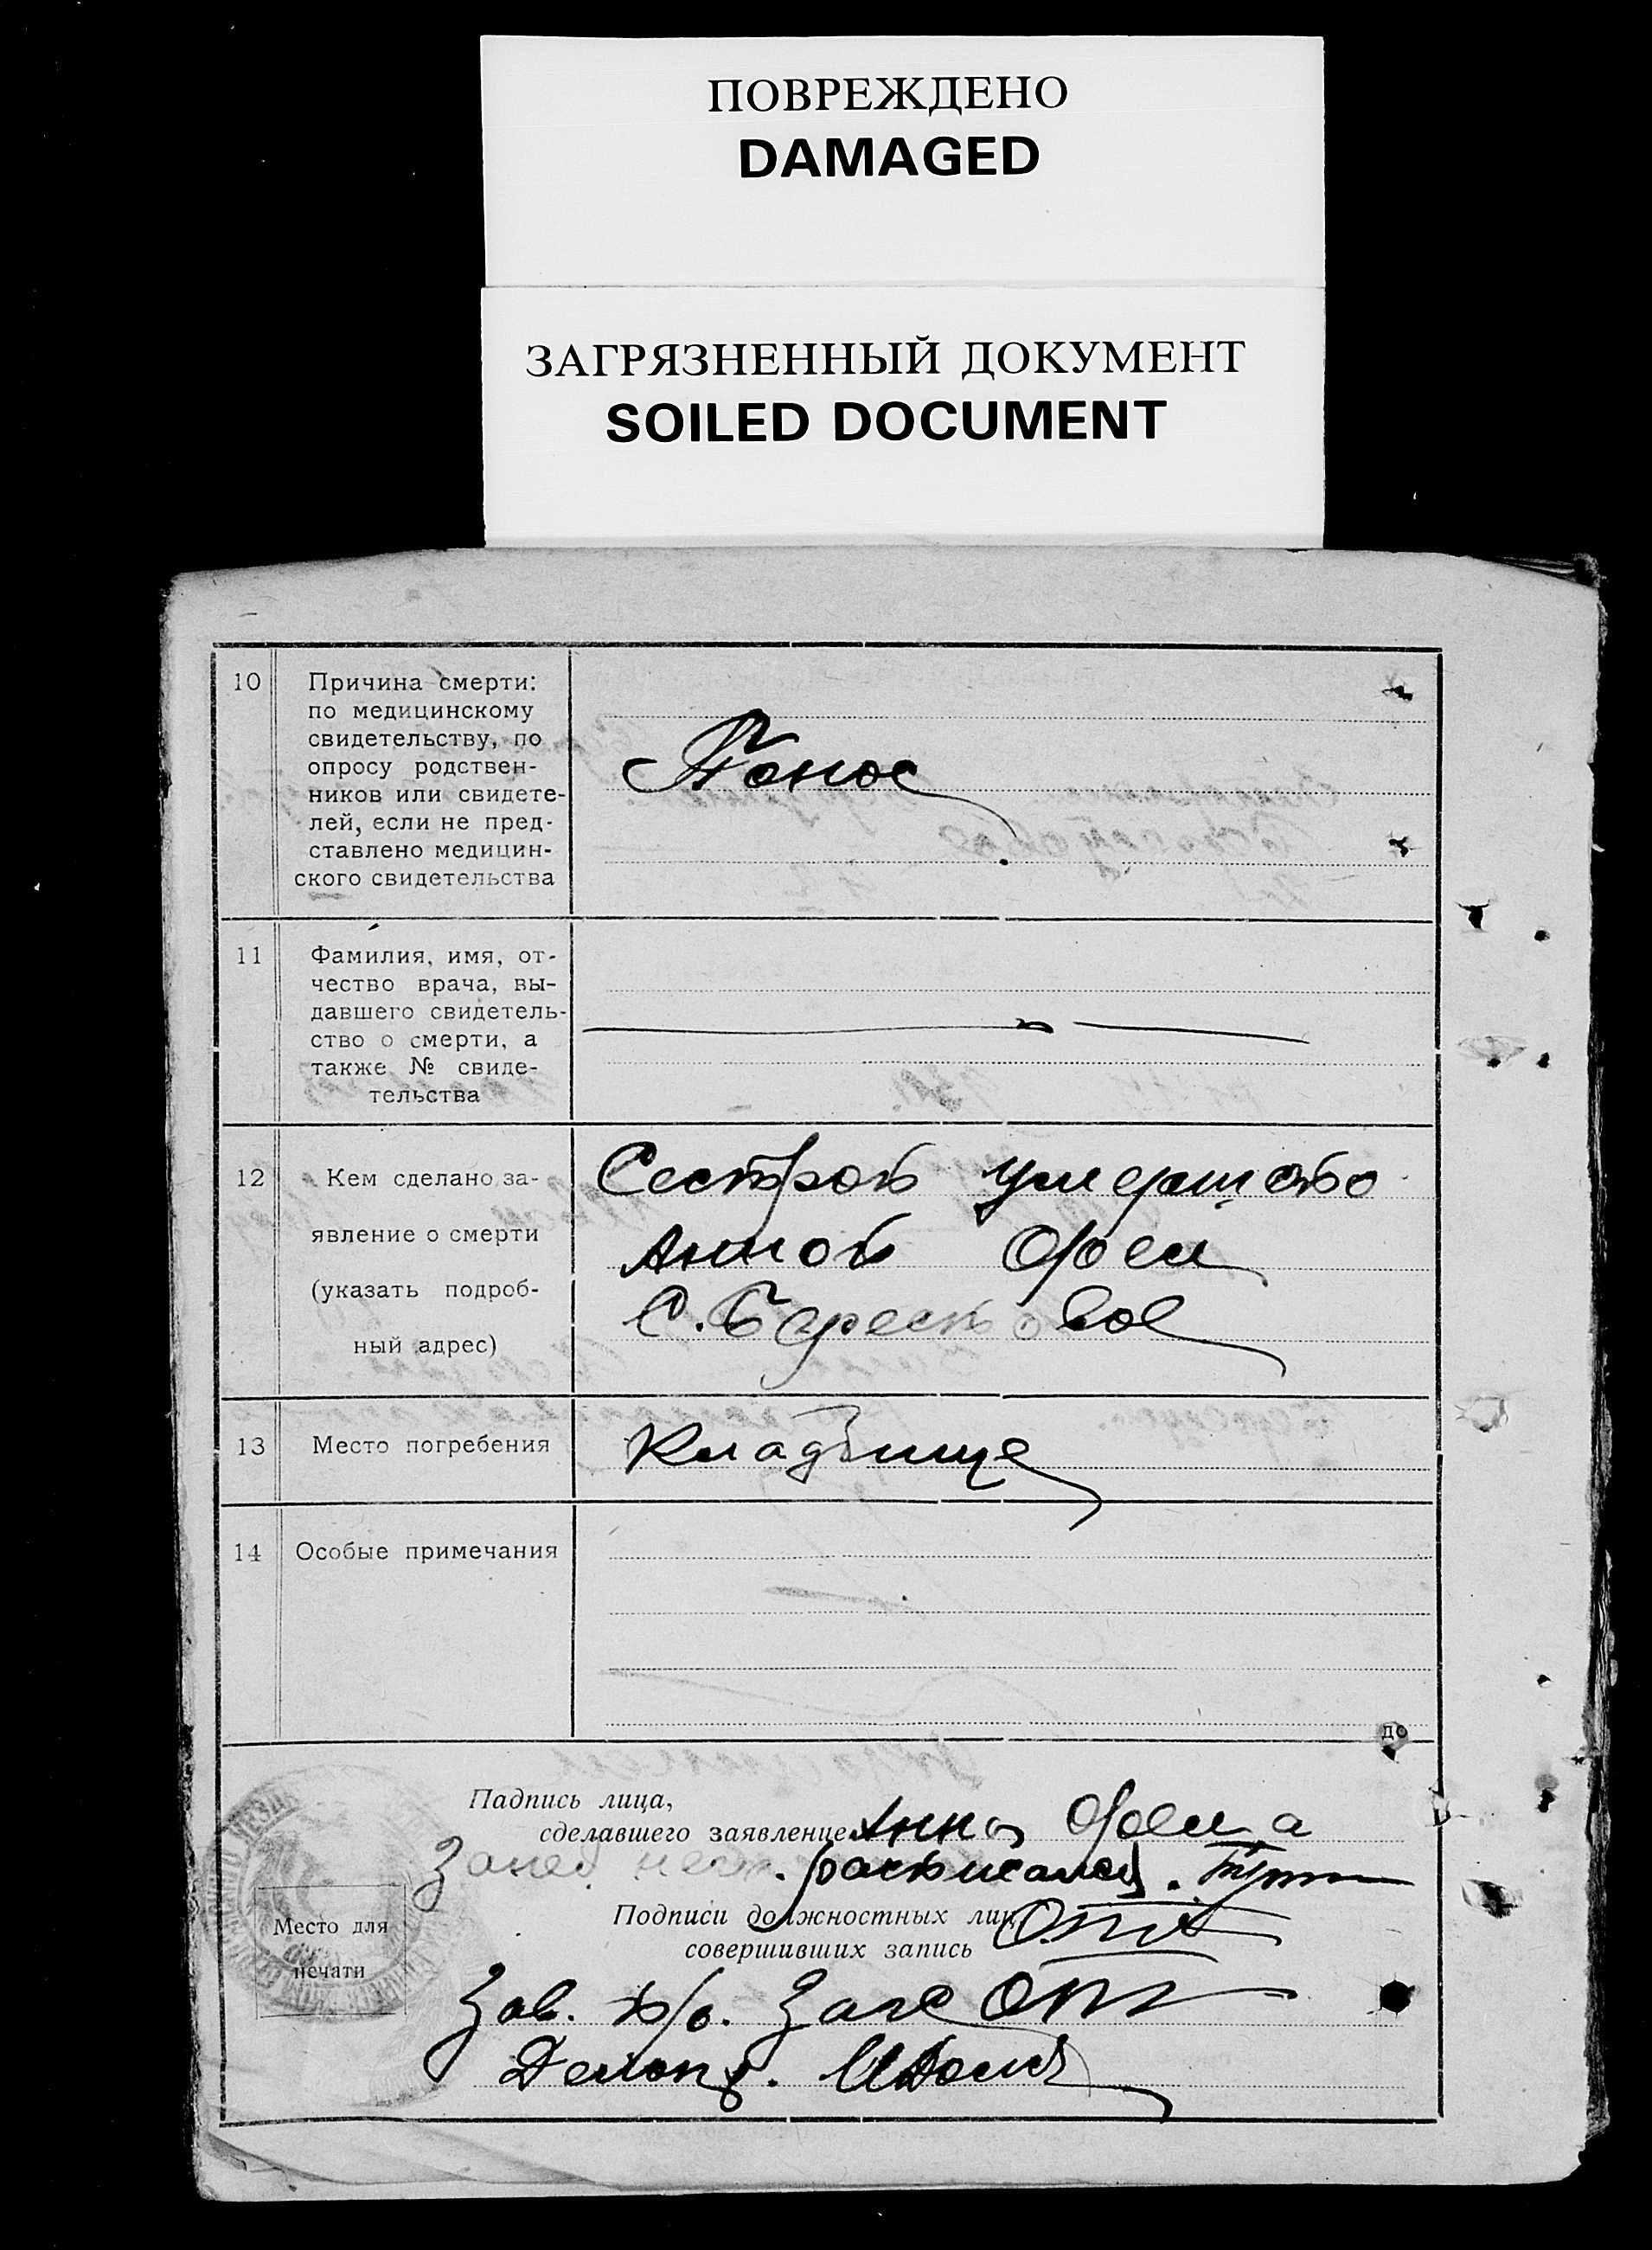 ПОВРЕЖДЕНО
DAMAGED
ЗАГРЯЗНЕННЫЙ ДОКУМЕНТ
SOILED DOCUMENT
10
Причина смерти:
по медицинскому
свидетельству, по
опросу родствен-
ников или свидете-
лей, если не пред-
ставлено медицин-
ского свидетельства
Понос
11
Фамилия, имя, от-
чество врача, вы-
давшего свидетель-
ство о смерти, а
также № свиде-
тельства
12
Кем сделано за-
явление о смерти
(указать подроб-
ный адрес)
Сестрой умершого
Анной
С.
13
Место погребения
Кладбище
14
Особые примечания
до
Падпись лица,
сделавшего заявление Анна
расписалсь.
Подписи должностных лиц,
совершивших запись
Место для
печати
Зав. р/б. Загс
Делопр.